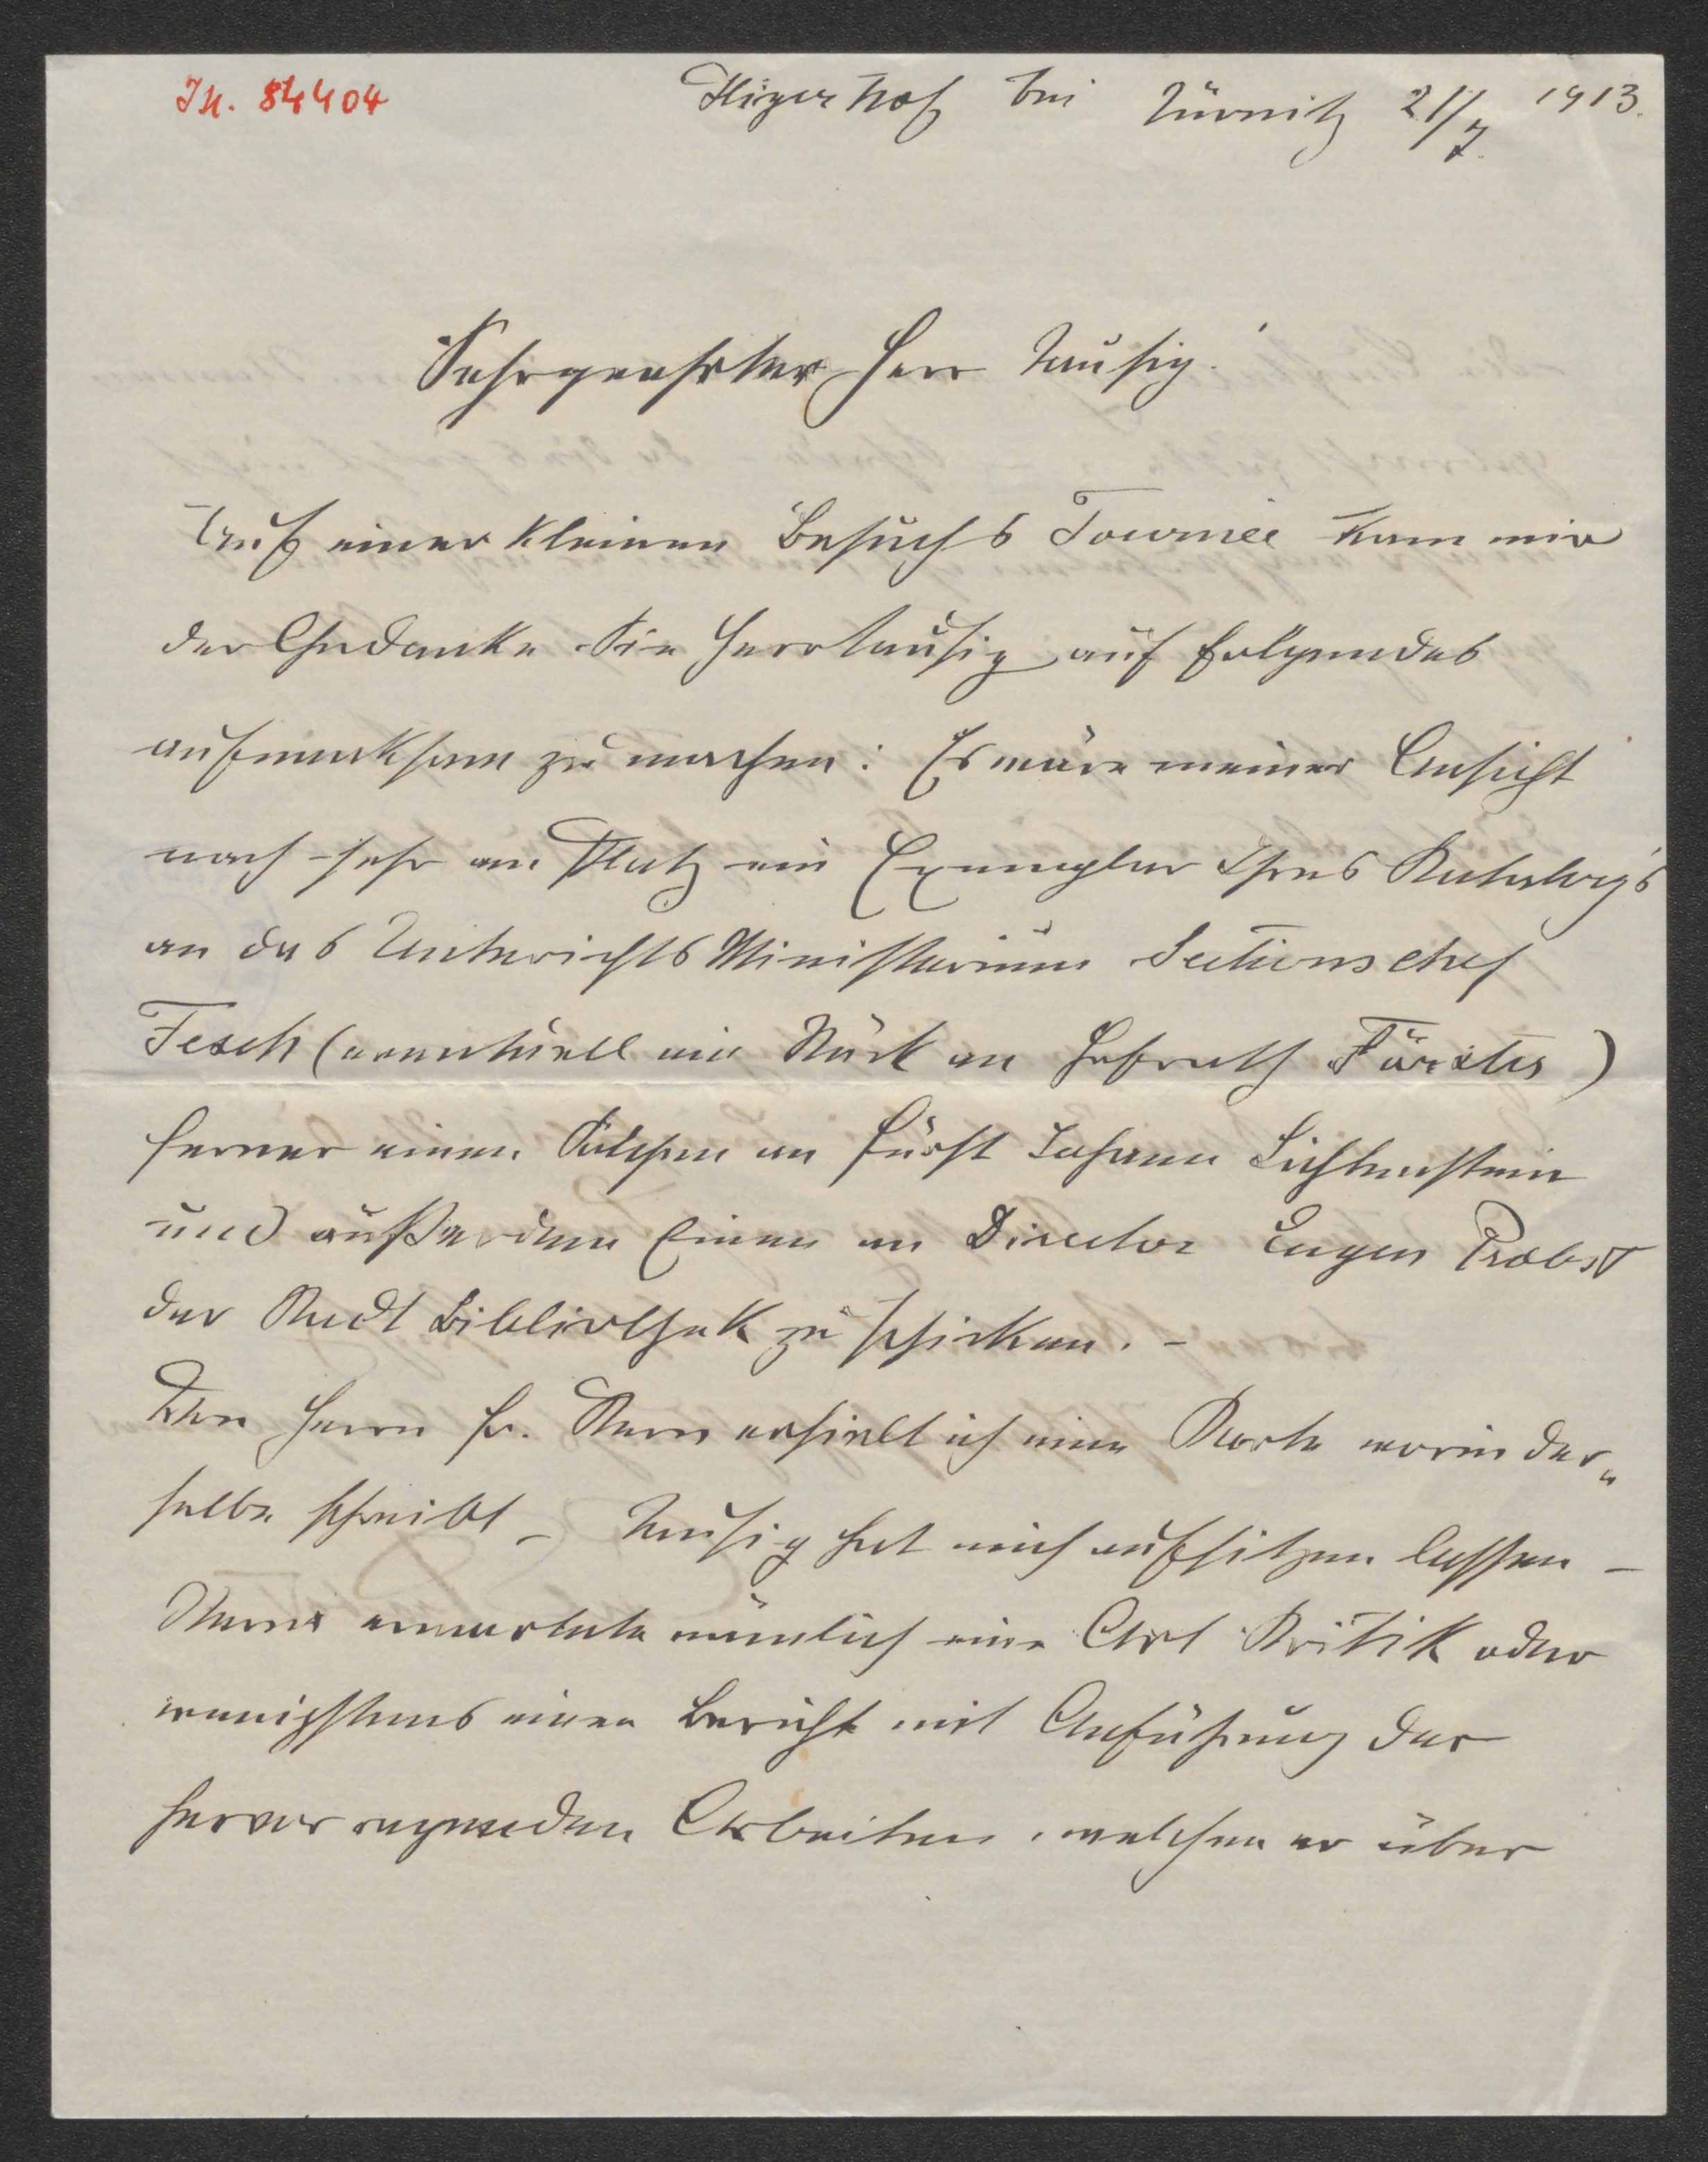 IN. 84404
hof bei Türnitz 21/7. 1913.
Sehrgeehrter Herr Tausig!
Auf einer kleinen Besuchs Tournée kam mir
der Gedanke Sie Herr Tausig auf folgendes
aufmerksam zu machen: Es wäre meiner Ansicht
nach sehr am Platz ein Exemplar Ihres Katalog's
an das Unterrichts Ministerium Sectionschef
(eventuell ein Stück an Hofrath Förster)
ferner einen Solchen an Fürst Johann Lichtenstein
und außerdem Einen an Director Eugen Probst
der Stadt Bibliothek zu schicken. –
Von Herrn Fr. Stern erhielt ich eine Karte worin der„
selbe schreibt – Tausig hat mich aufsitzen lassen –
Stern erwartete nämlich eine Art Kritik oder
wenigstens einen Bericht mit Anführung der
hervorragenden Arbeiten, welchen er über